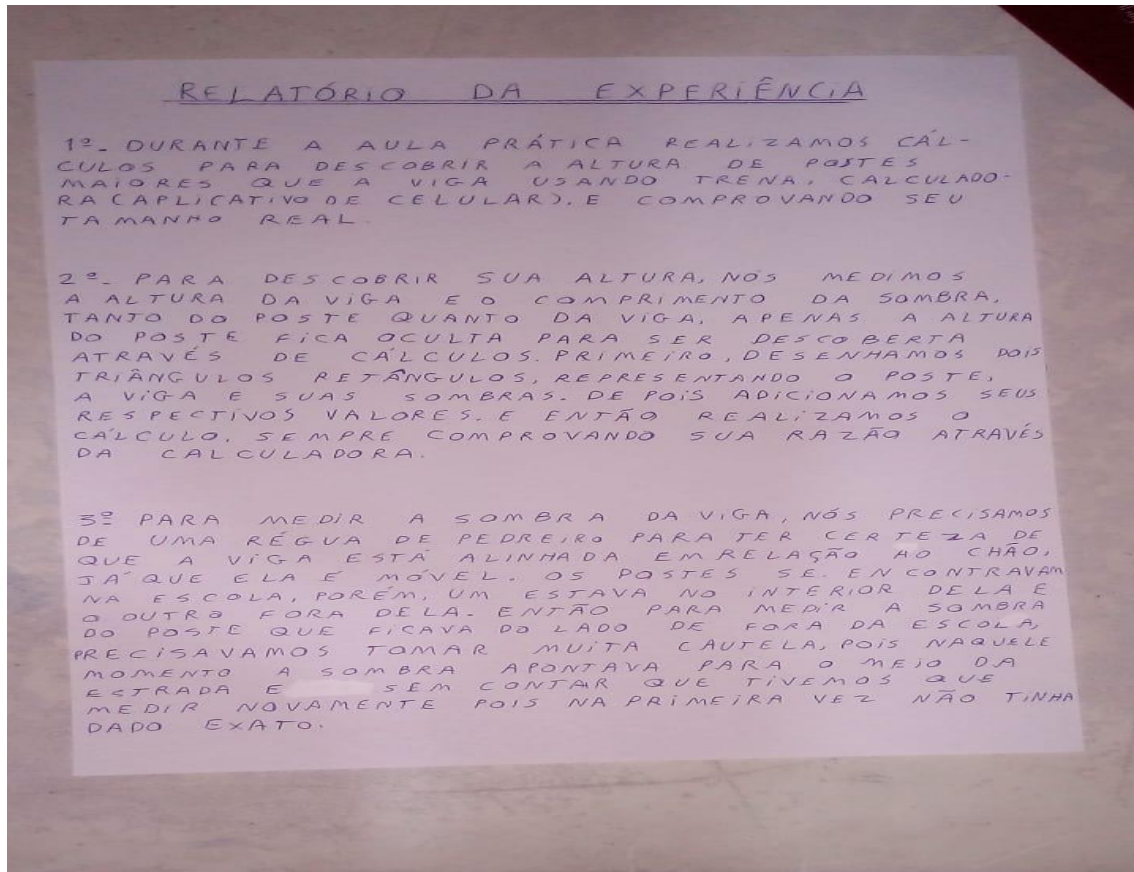 RELATÓRIO DA EXPERIÊNCIA
1º- DURANTE A AULA PRÁTICA REALIZAMOS CÁL-
CULOS PARA DESCOBRIR A ALTURA DE POSTES
MAIORES QUE A VIGA USANDO TRENA, CALCULADO-
RA (APLICATIVO DE CELULAR), E COMPROVANDO SEU
TAMANHO REAL.
2º- PARA DESCOBRIR SUA ALTURA, NÓS MEDIMOS
A ALTURA DA VIGA E O COMPRIMENTO DA SOMBRA,
TANTO DO POSTE QUANTO DA VIGA, APENAS A ALTURA
DO POSTE FICA OCULTA PARA SER DESCOBERTA
ATRAVÉS DE CÁLCULOS. PRIMEIRO, DESENHAMOS DOIS
TRIÂNGULOS RETÂNGULOS, REPRESENTANDO O POSTE,
A VIGA E SUAS SOMBRAS. DEPOIS ADICIONAMOS SEUS
RESPECTIVOS VALORES. E ENTÃO REALIZAMOS O
CÁLCULO, SEMPRE COMPROVANDO SUA RAZÃO ATRAVÉS
DA CALCULADORA.
3º PARA MEDIR A SOMBRA DA VIGA, NÓS PRECISAMOS
DE UMA RÉGUA DE PEDREIRO PARA TER CERTEZA DE
QUE A VIGA ESTÁ ALINHADA EM RELAÇÃO AO CHÃO,
JÁ QUE ELA É MÓVEL. OS POSTES SE ENCONTRAVAM
NA ESCOLA, PORÉM, UM ESTAVA NO INTERIOR DELA E
O OUTRO FORA DELA. ENTÃO PARA MEDIR A SOMBRA
DO POSTE QUE FICAVA DO LADO DE FORA DA ESCOLA,
PRECISAVAMOS TOMAR MUITA CAUTELA, POIS NAQUELE
MOMENTO A SOMBRA APONTAVA PARA O MEIO DA
ESTRADA E SEM CONTAR QUE TIVEMOS QUE
MEDIR NOVAMENTE POIS NA PRIMEIRA VEZ NÃO TINHA
DADO EXATO.